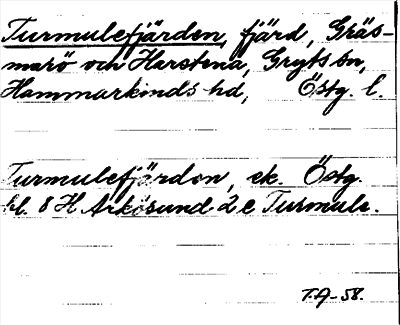 Turmulefjärden, fjärd, Gräs-
marö och Harstena, Gryts sn,
Hammarkinds hd, Östg. l.
Turmulefjärden, ek. Östg.
bl. 8 H Arkösund 2 e Turmule.
T.A-58.